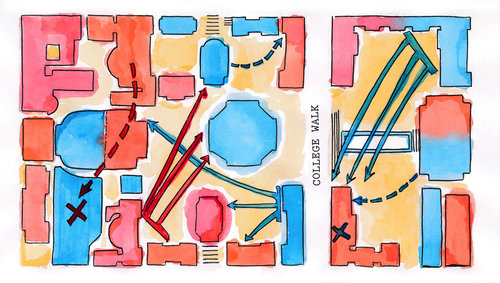 COLLEGE WALK